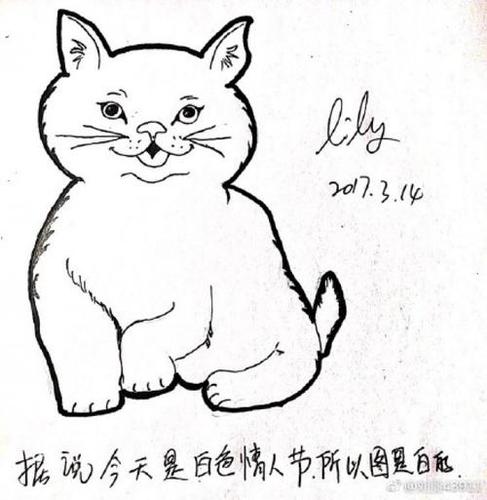 lily
2017.3.14
据说今天是白色情人节.所以图是白的.